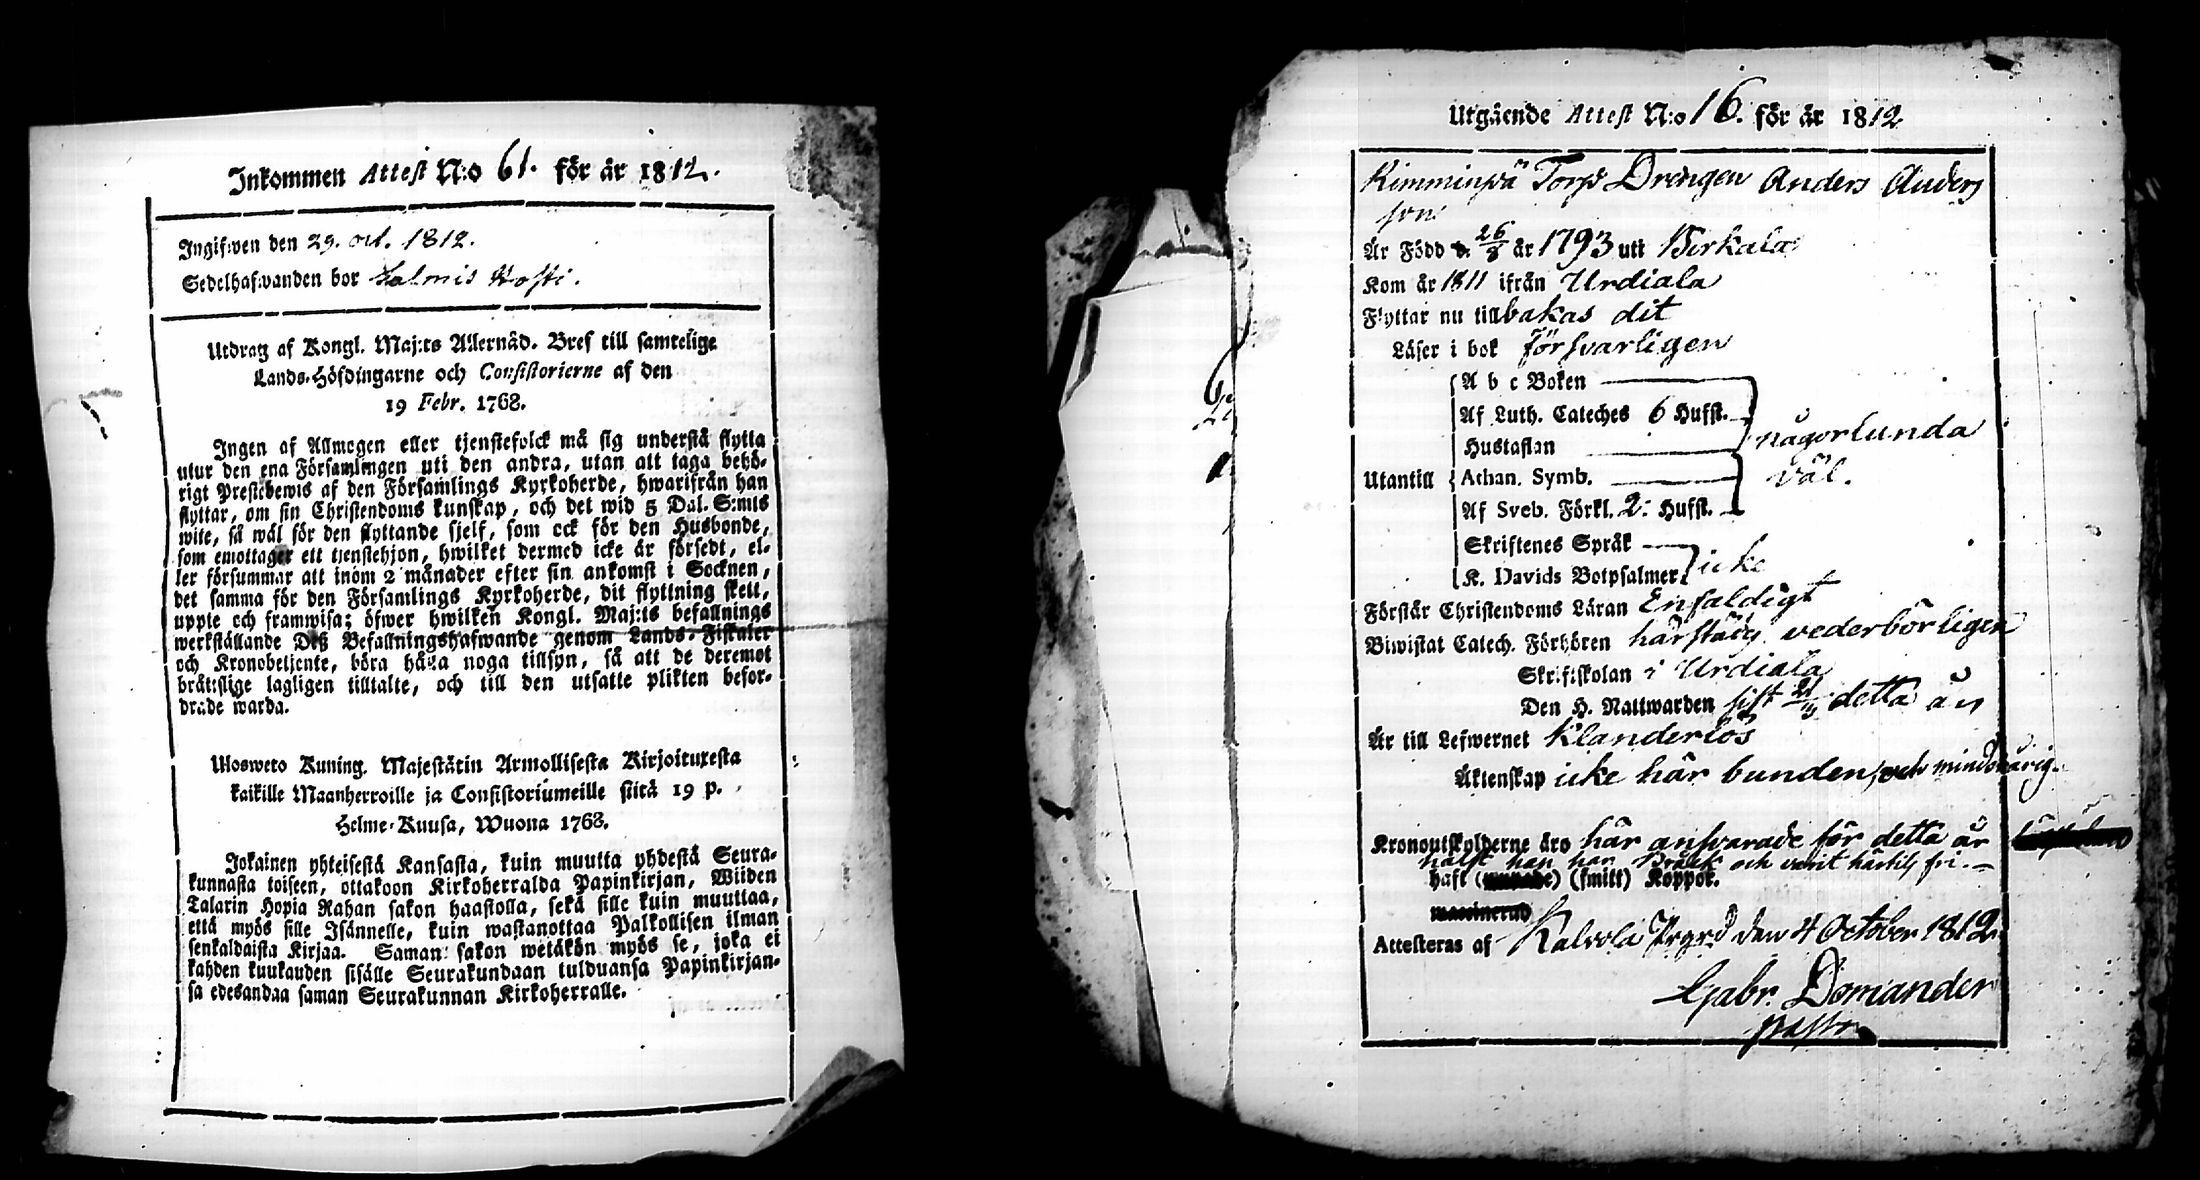 Inkommen Attest N:o 61. för år 1812.
Ingifwen den 29. oct. 1812.
Sedelhafwanden bor Salmis Kosti.
Utdrag af Kongl. Maj:ts Allernåd. Bref till samtelige
Lands-Höfdingarne och Consistorierne af den
19 Febr. 1768.
Ingen af Allmogen eller tjenstefolck må sig understå flytta
utur den ena Församlingen uti den andra, utan att taga behö-
rigt Prestebewis af den Församlings Kyrkoherde, hwarifrån han
flyttar, om sin Christendoms kunskap, och det wid 5 Dal. S:mts
wite, så wäl för den flyttande sjelf, som ock för den Husbonde,
som emottager ett tjenstehjon, hwilket dermed icke är försedt, el-
ler försummar att inom 2 månader efter sin ankomst i Socknen,
det samma för den Församlings Kyrkoherde, dit flyttning skett,
uppte och framwisa; öfwer hwilken Kongl. Maj:ts befallnings
werkställande Deß Befallningshafwande genom Lands-Fiskaler
och Kronobetjente, böra hålla noga tillsyn, så att de deremot
bråttslige lagligen tilltalte, och till den utsatte plikten befor-
drade warda.
Ulosweto Kuning. Majestätin Armollisesta Kirjoituxesta
kaikille Maanherroille ja Consistoriumeille siitä 19 p.
Helme-Kuusa, Wuona 1768.
Jokainen yhteisestä Kansasta, kuin muutta yhdestä Seura-
kunnasta toiseen, ottakoon Kirkoherralda Papinkirjan, Wiiden
Talarin Hopia Rahan sakon haastolla, sekä sille kuin muuttaa,
että myös sille Isännelle, kuin wastanottaa Palkollisen ilman
senkaldaista Kirjaa. Saman sakon wetäkön myös se, joka ei
kahden kuukauden sisälle Seurakundaan tulduansa Papinkirjan-
sa edesandaa saman Seurakunnan Kirkoherralle.
Utgående Attest N:o 16. för år 1812
Kimminpä Torps Drengen Anders Anders
son
Är Född d. 26/8 år 1793 uti Birkala
Kom år 1811 ifrån Urdiala
Flyttar nu tillbakas dit
Läser i bok försvarligen
A b c Boken
Af Luth. Cateches 6 Hufst.
Hustaflan
någorlunda
Utantill Athan. Symb.
väl.
Af Sveb. Förkl. 2: Hufst.
Skriftenes Språk
K. Davids Botpsalmer icke
Förstår Christendoms Läran Enfaldigt
Biwistat Catech. Förhören härstädes vederbörligen
Skriftskolan i Urdiala
Den H. Nattwarden sist detta år
Är till Lefwernet Klanderlös
Äktenskap icke här bunden, och minderårig.
Kronoutskylderne äro här ansvarade för detta år
hälst han har Bräck och varit härtils fri.
haft (smitt) Koppor.
Attesteras af Kalvola Prgrd den 4 October 1812
Gabr. Domander
Pastor